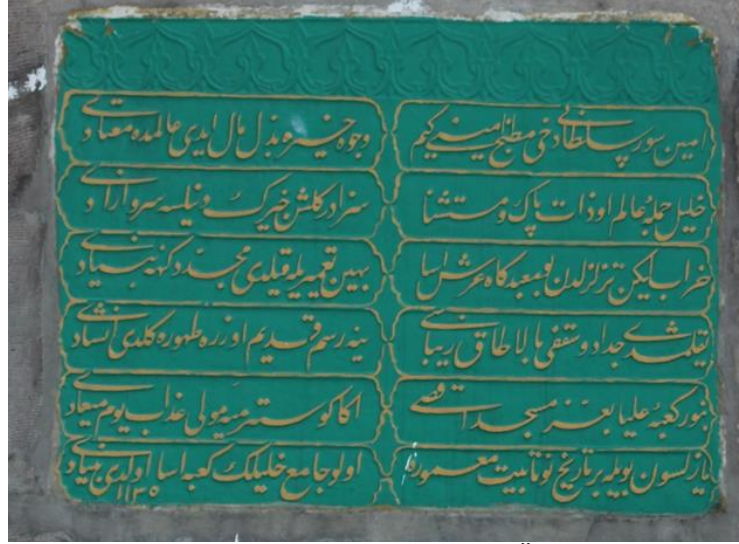 امین سور سلطانی دخی مطبخ امینی کیم
وجوه خیره بذل مال ایدی عالمده معتادی
خلیل جمله عالم اوذات پاک و مستثنا
سزادر کلشن خیرک دنیلسه سرو آزادی
خراب ایکن تزلزلدن بو معبدگاه عرش اسا
بهین تعمیریله قیلدی مجدد کهنه بنیادی
جدا دوسقفی بالا طاق زیباسی
ینه رسم قدیم اوزره ظهوره کلدی انشادی
بنور کعبه علیا بعز مسجد اقصی
اکا کوسترمیه مولی عذاب یوم میعادی
یازلسون بویله بر تاریخ نو تابیت معموره
اولو جامع خلیلک کعبه اسا اولدی بنیادی
١١٣٥